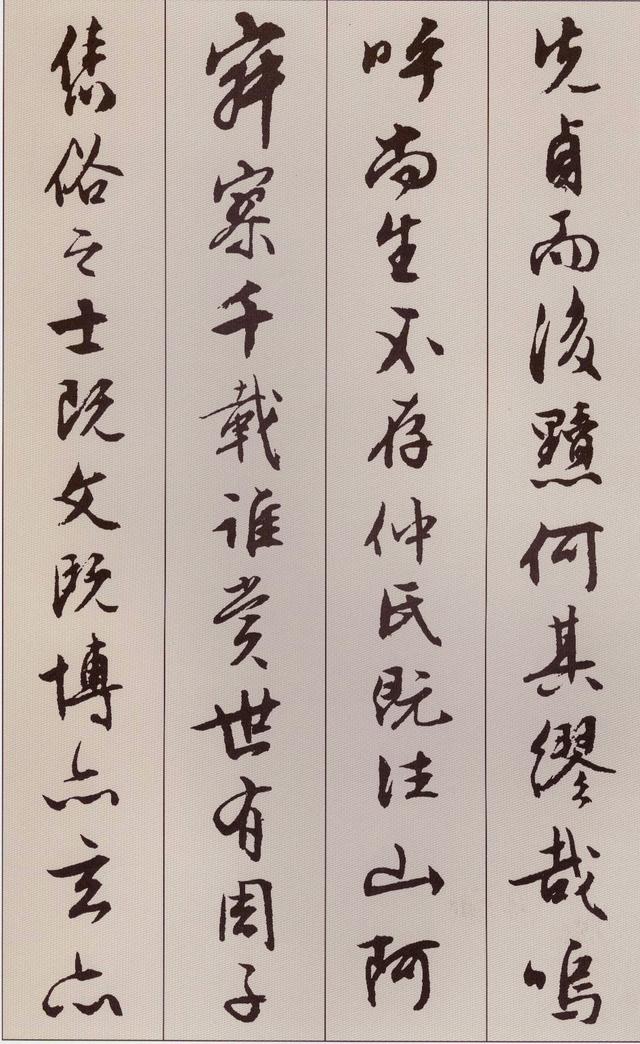 先貞而後黷何其繆哉嗚
呼尚生不存仲氏既往山阿
寂寥千載誰賞世有周子
俗之士既文既博亦玄亦